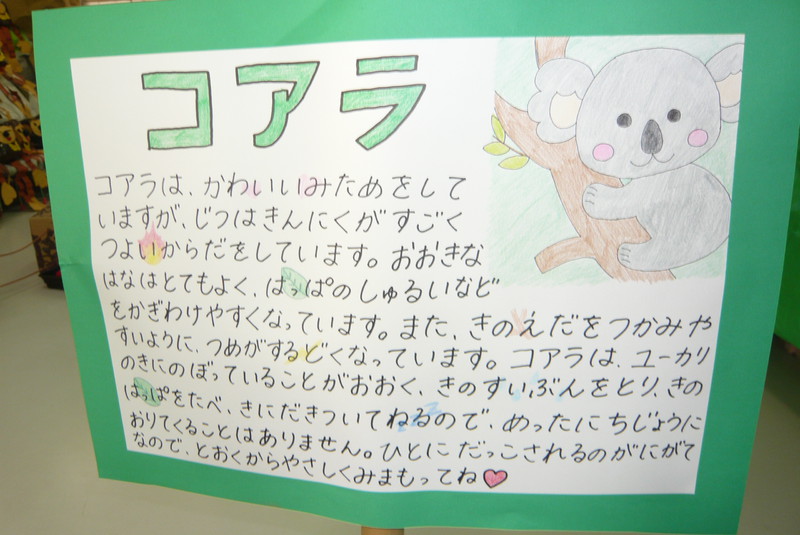 コアラ
コアラは、かわいいみためをして
いますが、じつはきんにくがすごく
つよいからだをしています。おおきな
はなはとてもよく、はっぱのしゅるいなど
をかぎわけやすくなっています。また、きのえだをつかみや
すいように、つめがするどくなっています。コアラは、ユーカリ
のきにのぼっていることがおおく、きのすいぶんをとり、きの
はっぱをたべ、きにだきついてねるので、めったにちじょうに
おりてくることはありません。ひとにだっこされるのがにがて
なので、とおくからやさしくみまもってね